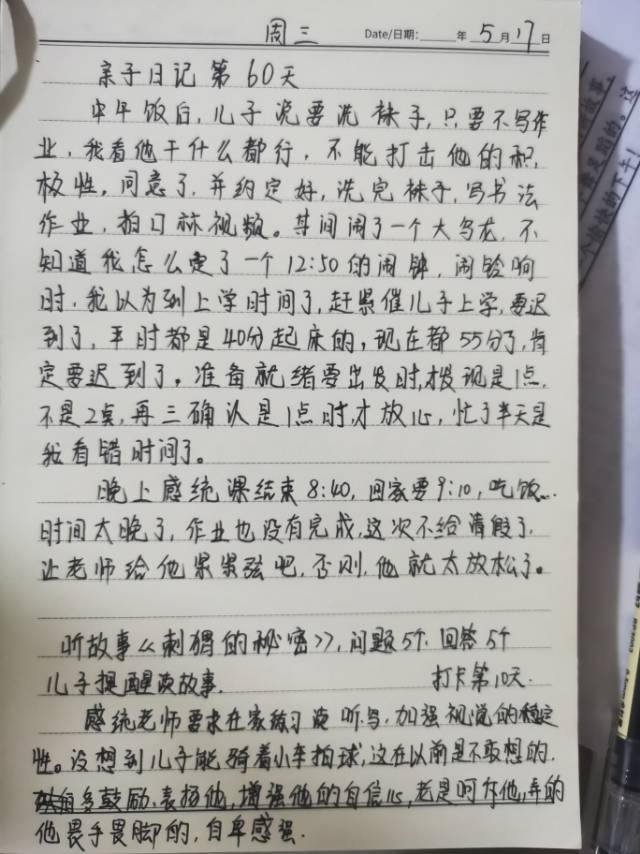 周三 Date/日期: 年 5 月 17 日
亲子日记第60天
中午饭后,儿子说要洗袜子,只要不写作
业,我看他干什么都行,不能打击他的积
极性,同意了,并约定好,洗完袜子,写书法
作业,拍口琴视频。其间闹了一个大乌龙,不
知道我怎么定了一个12:50的闹钟,闹铃响
时,我以为到上学时间了,赶紧催儿子上学,要迟
到了,平时都是40分起床的,现在都55分了,肯
定要迟到了。准备就绪要出发时,才发现是1点,
不是2点,再三确认是1点时,才放心,忙了半天是
我看错时间了。
晚上感统课结束8:40,回家要9:10,吃饭...
时间太晚了,作业也没有完成,这次不给请假了,
让老师给他紧紧弦吧,否则,他就太放松了。
听故事《刺猬的秘密》,问题5个,回答5个
儿子提醒读故事. 打卡第10天.
感统老师要求在家练习读听写,加强视觉的稳定
性。没想到儿子能骑着小车拍球,这在以前是不敢想的.
多鼓励、表扬他,增强他的自信心,老是呵斥他,弄的
他畏手畏脚的,自卑感强.
故事.
是真的。这
个愉快的下午!